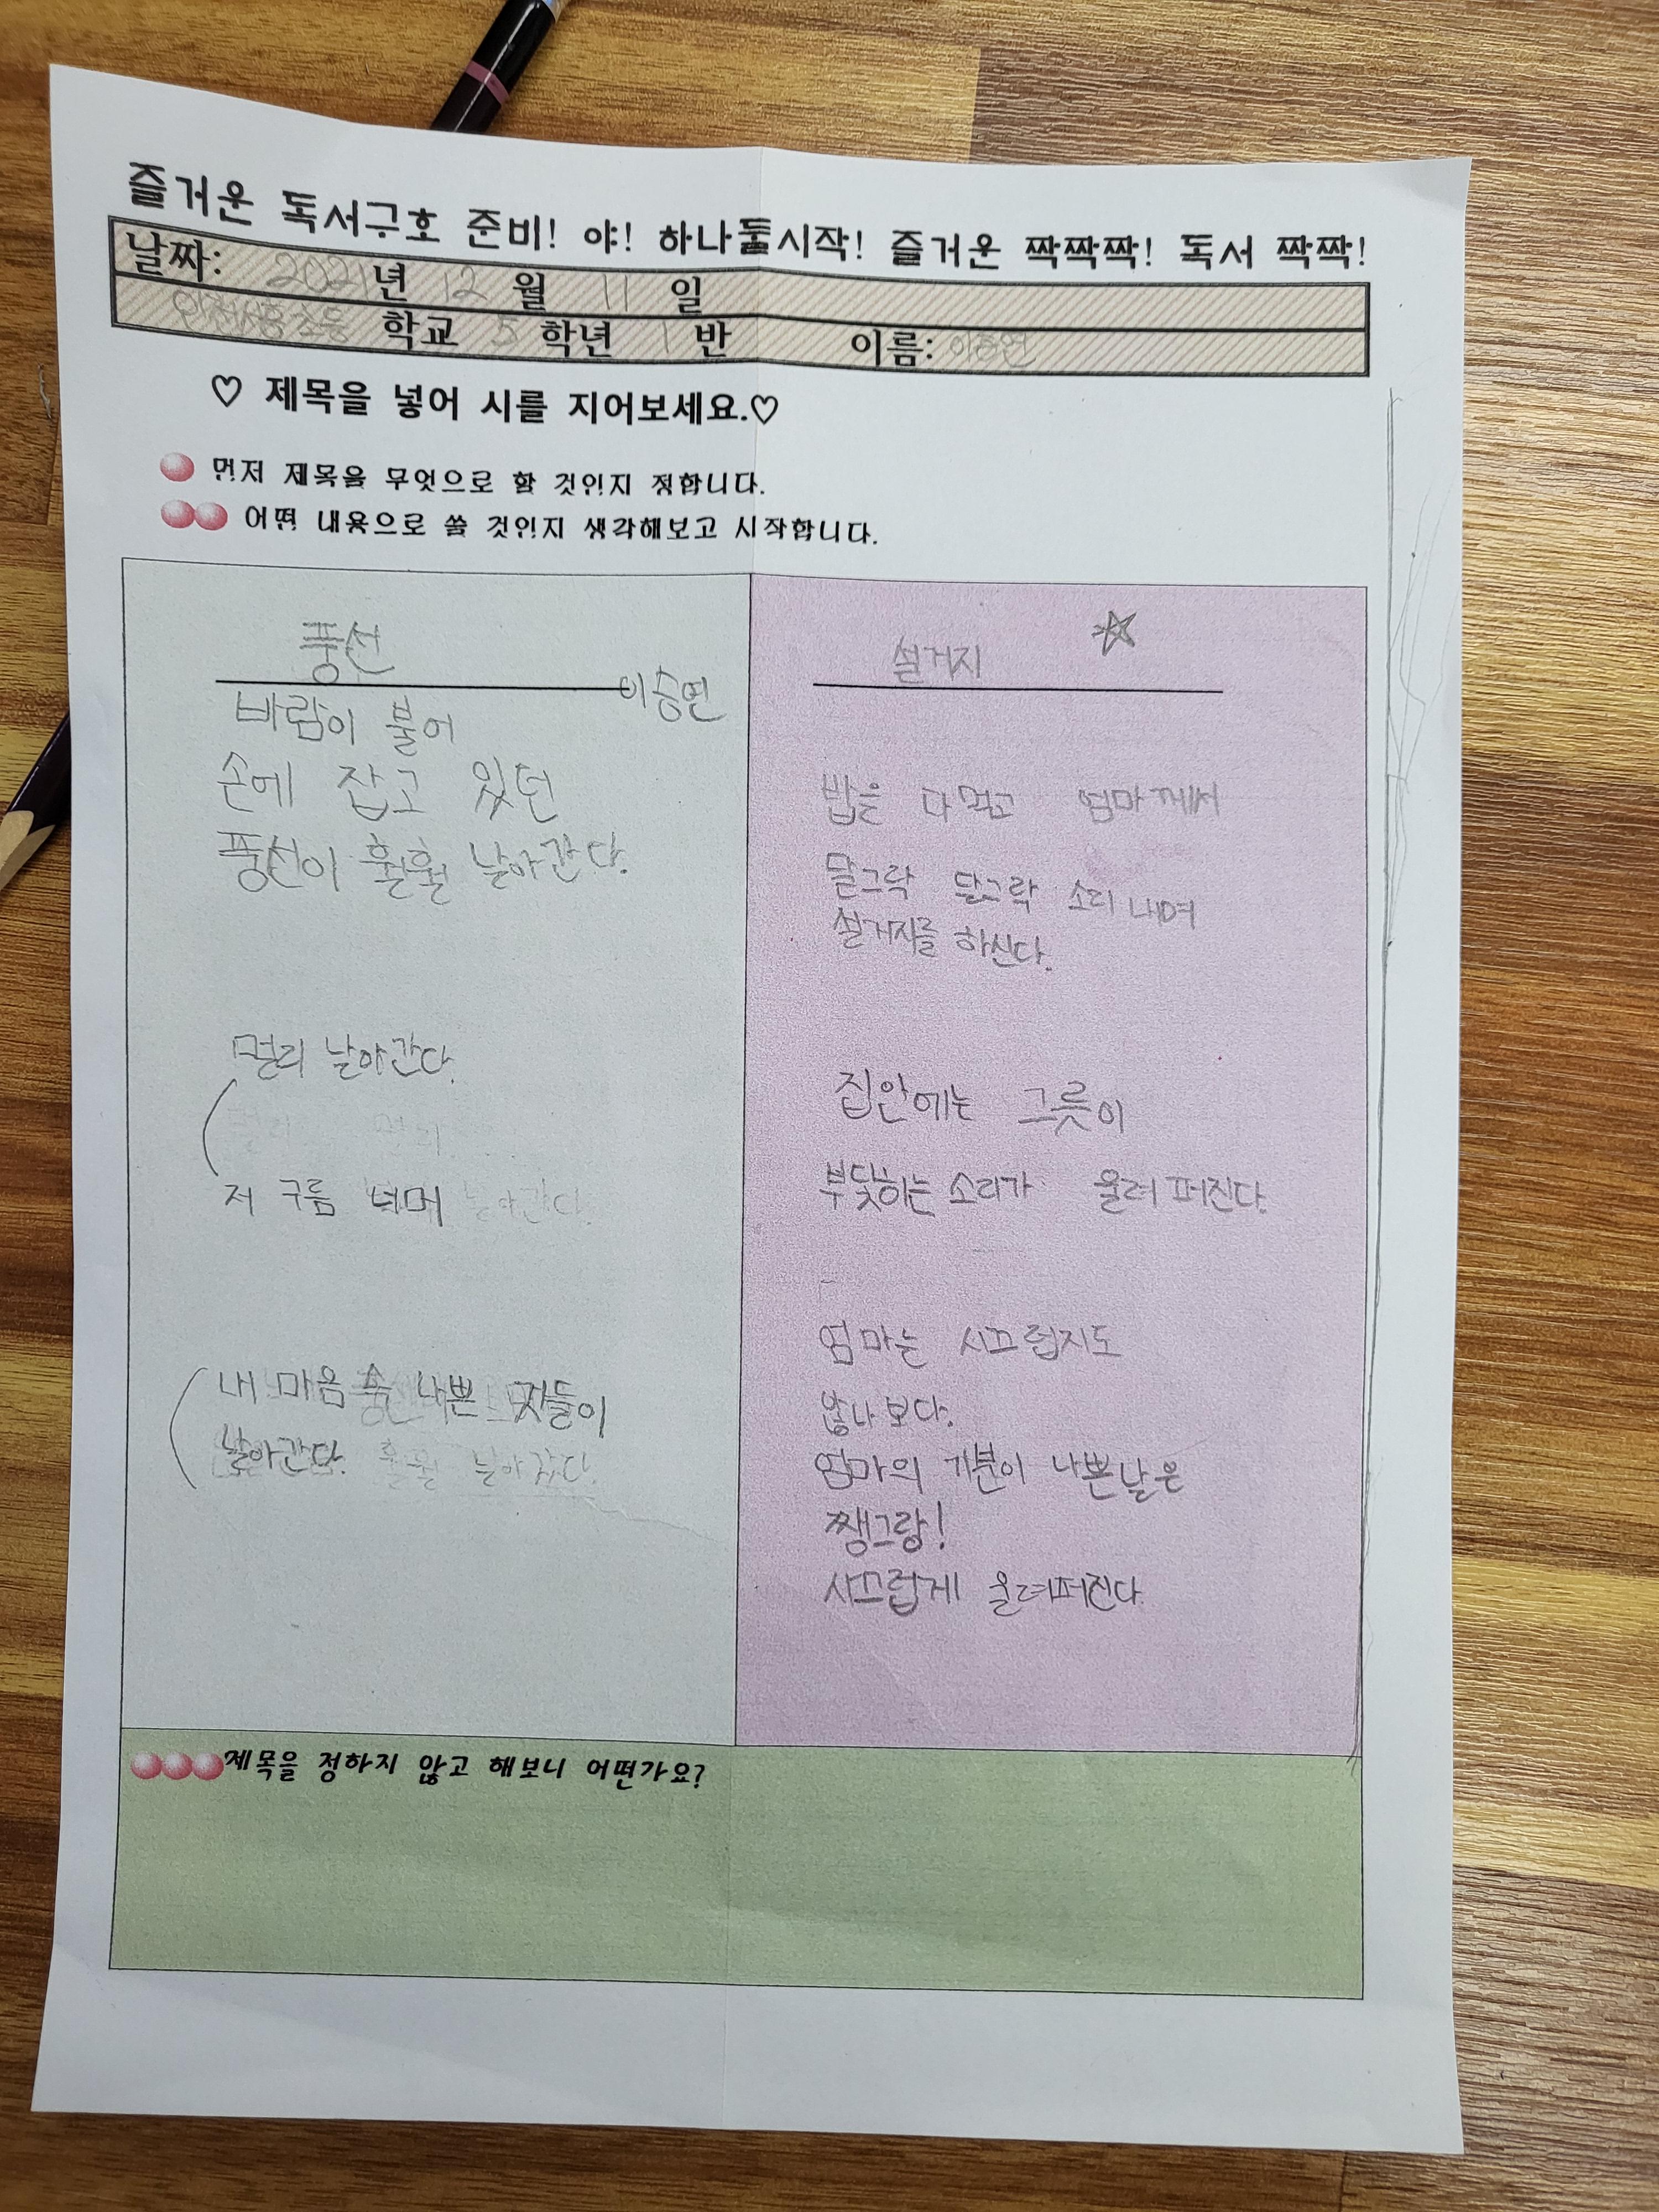 즐거운 독서구호 준비! 야! 하나둘시작! 즐거운 짝짝짝! 독서 짝짝!
날짜: 2021년 12월 11일
학교 5학년 1반 이름: 이승연
♡ 제목을 넣어 시를 지어보세요.♡
먼저 제목을 무엇으로 할 것인지 정합니다.
어떤 내용으로 쓸 것인지 생각해보고 시작합니다.
풍선
이승연
바람이 불어
손에 잡고 있던
풍선이 훨훨 날아간다.
멀리 날아간다.
저 구름 너머 날아간다.
내 마음 속 나쁜 것들이
날아간다. 훨훨 날아갔다.
설거지
밥을 다 먹고 엄마께서
달그락 달그락 소리 내며
설거지를 하신다.
집안에는 그릇이
부닺히는 소리가 울려 퍼진다.
엄마는 시끄럽지도
않나 보다.
엄마의 기분이 나쁜날은
쨍그랑!
시끄럽게 울려퍼진다.
제목을 정하지 않고 해보니 어떤가요?